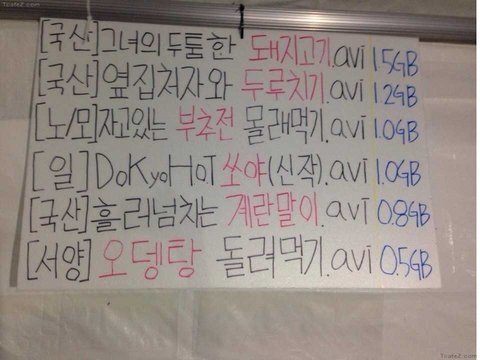 Tcafe2.com
[국산]그녀의 두툼한 돼지고기.avi 1.5GB
[국산]옆집처자와 두루치기.avi 1.2GB
[노/모]자고있는 부추전 몰래먹기.avi 1.0GB
[일]DoKyoHoT 쏘야(신작).avi 1.0GB
[국산]흘러넘치는 계란말이.avi 0.8GB
[서양]오뎅탕 돌려먹기.avi 0.5GB
Tcafe2.com